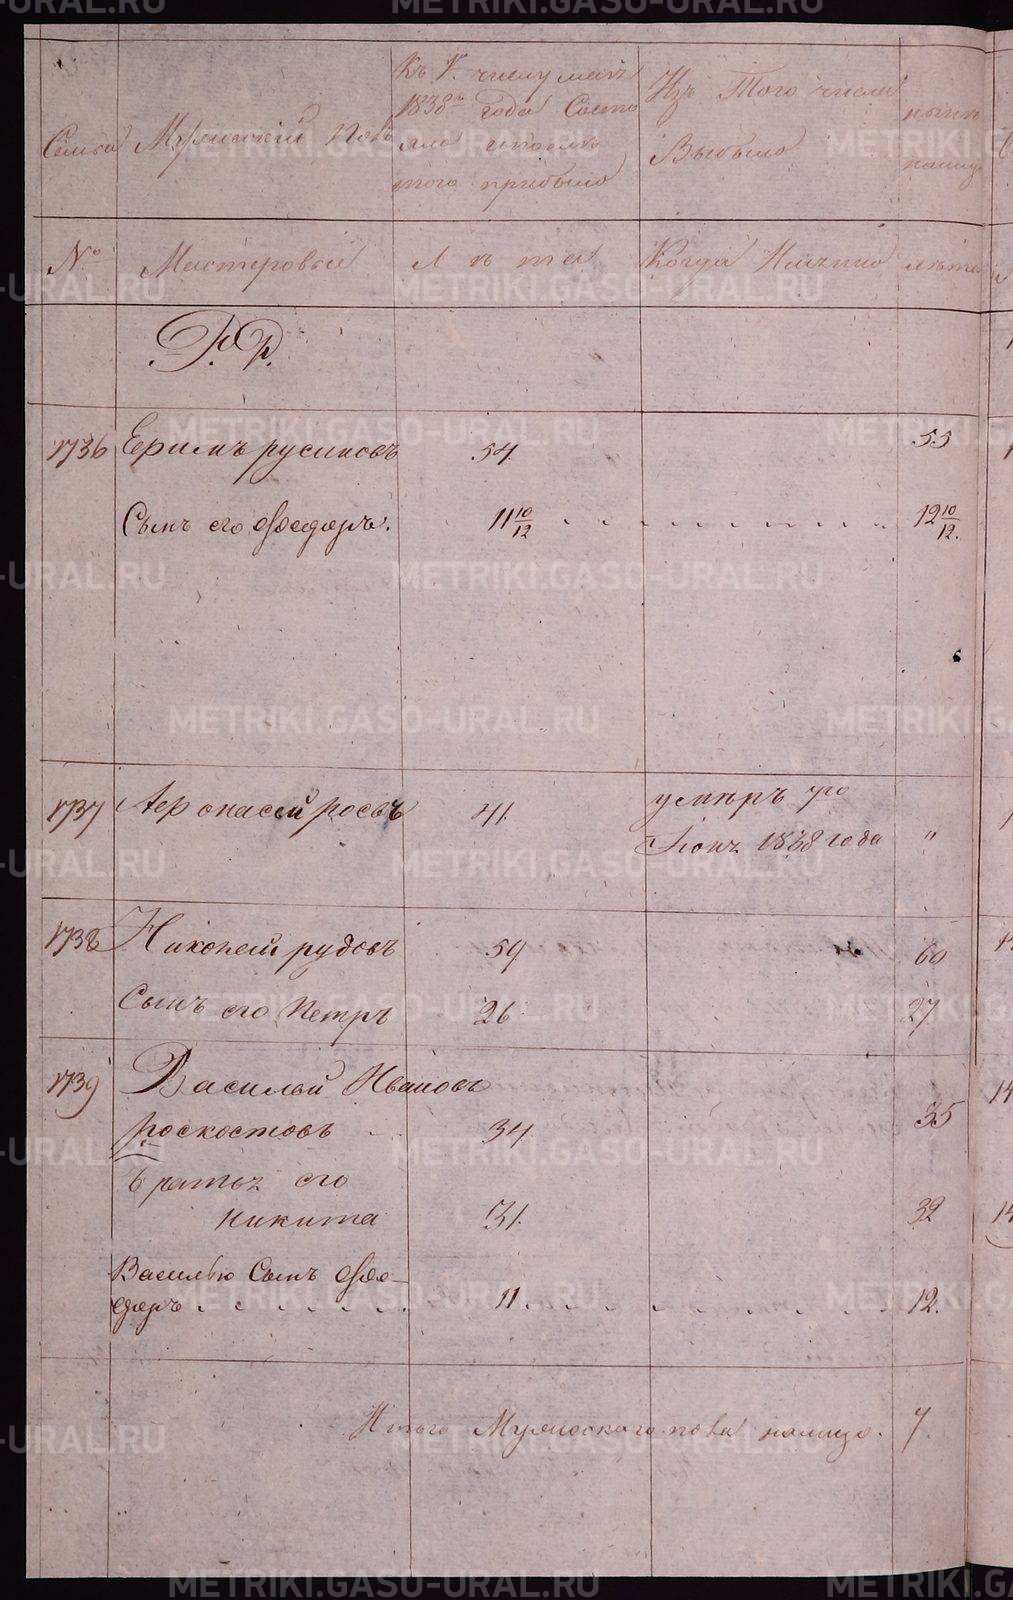 Семьи
Мужескій Полъ
Къ 1. числу маія
1838го года Состо
яло и после
того прибыло
Изъ Того числа
Выбыло
нынѣ
налицо
№
Мастеровые
Лѣта
Когда Имянно
лѣта
Р.Р.
1736 Ефимъ русиновъ 54. 55
Сынъ его Ѳеодоръ. 11 10/12 12 10/12.
1737 Афонасей росвъ 41. умѣръ 7го
Іюня 1838 года "
1738 Никонъ рудовъ 59 60
Сынъ его Петръ 26 27
1739 Василей Ивановъ
роскостовъ 34 35
братья его
никита 31. 32
Василью Сынъ Ѳео-
доръ 11. 12.
Итого Мужескаго пола налицо. 7.
METRIKI.GASO-URAL.RU